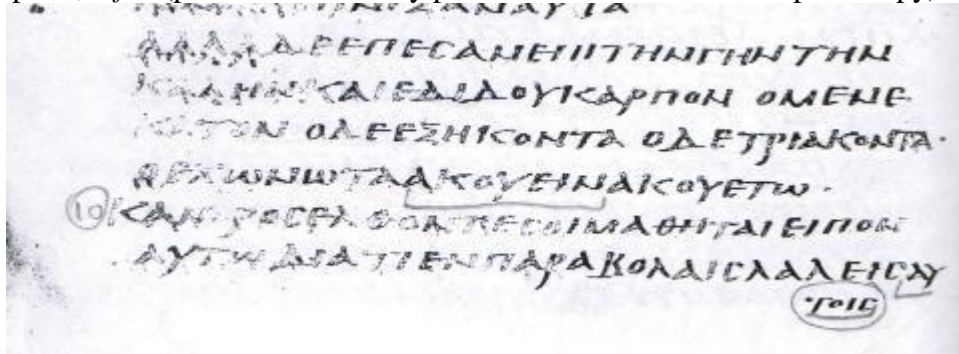 ΞΑΝΑΥΤΑ
ΑΛΛΑΔΕΕΠΕCΑΝΕΠΙΤΗΝΓΗΝΤΗΝ
ΚΑΛΗΝ ΚΑΙΕΔΙΔΟΥΚΑΡΠΟΝ ΟΜΕΝΕ
ΚΑΤΟΝ ΟΔΕΕΞΗΚΟΝΤΑ ΟΔΕΤΡΙΑΚΟΝΤΑ·
ΟΕΧΩΝΩΤΑΑΚΟΥΕΙΝΑΚΟΥΕΤΩ·
10 ΚΑΙΠΡΟCΕΛΘΟΝΤΕCΟΙΜΑΘΗΤΑΙΕΙΠΟΝ
ΑΥΤΩ ΔΙΑΤΙΕΝΠΑΡΑΒΟΛΑΙCΛΑΛΕΙCΑΥ
ΤΟΙC·